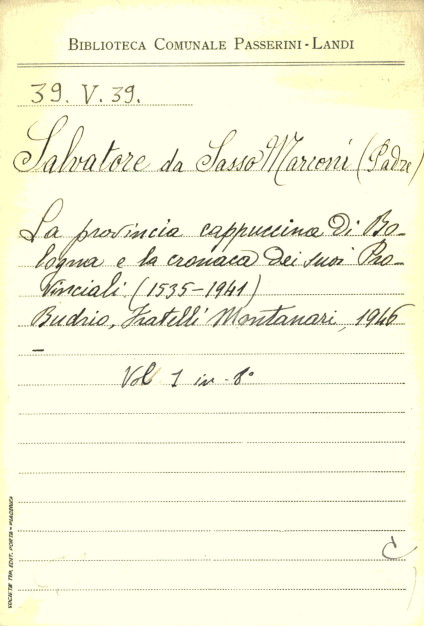 BIBLIOTECA COMUNALE PASSERINI-LANDI
39. V. 39.
Salvatore da Sasso Marconi (Padre)
La provincia cappuccina di Bo-
logna e la cronaca dei suoi Pro-
vinciali (1535-1941)
Budrio, Fratelli Montanari, 1946
Vol 1 in-8°
C
SOCIETÀ TIP. EDIT. PORTA - PIACENZA